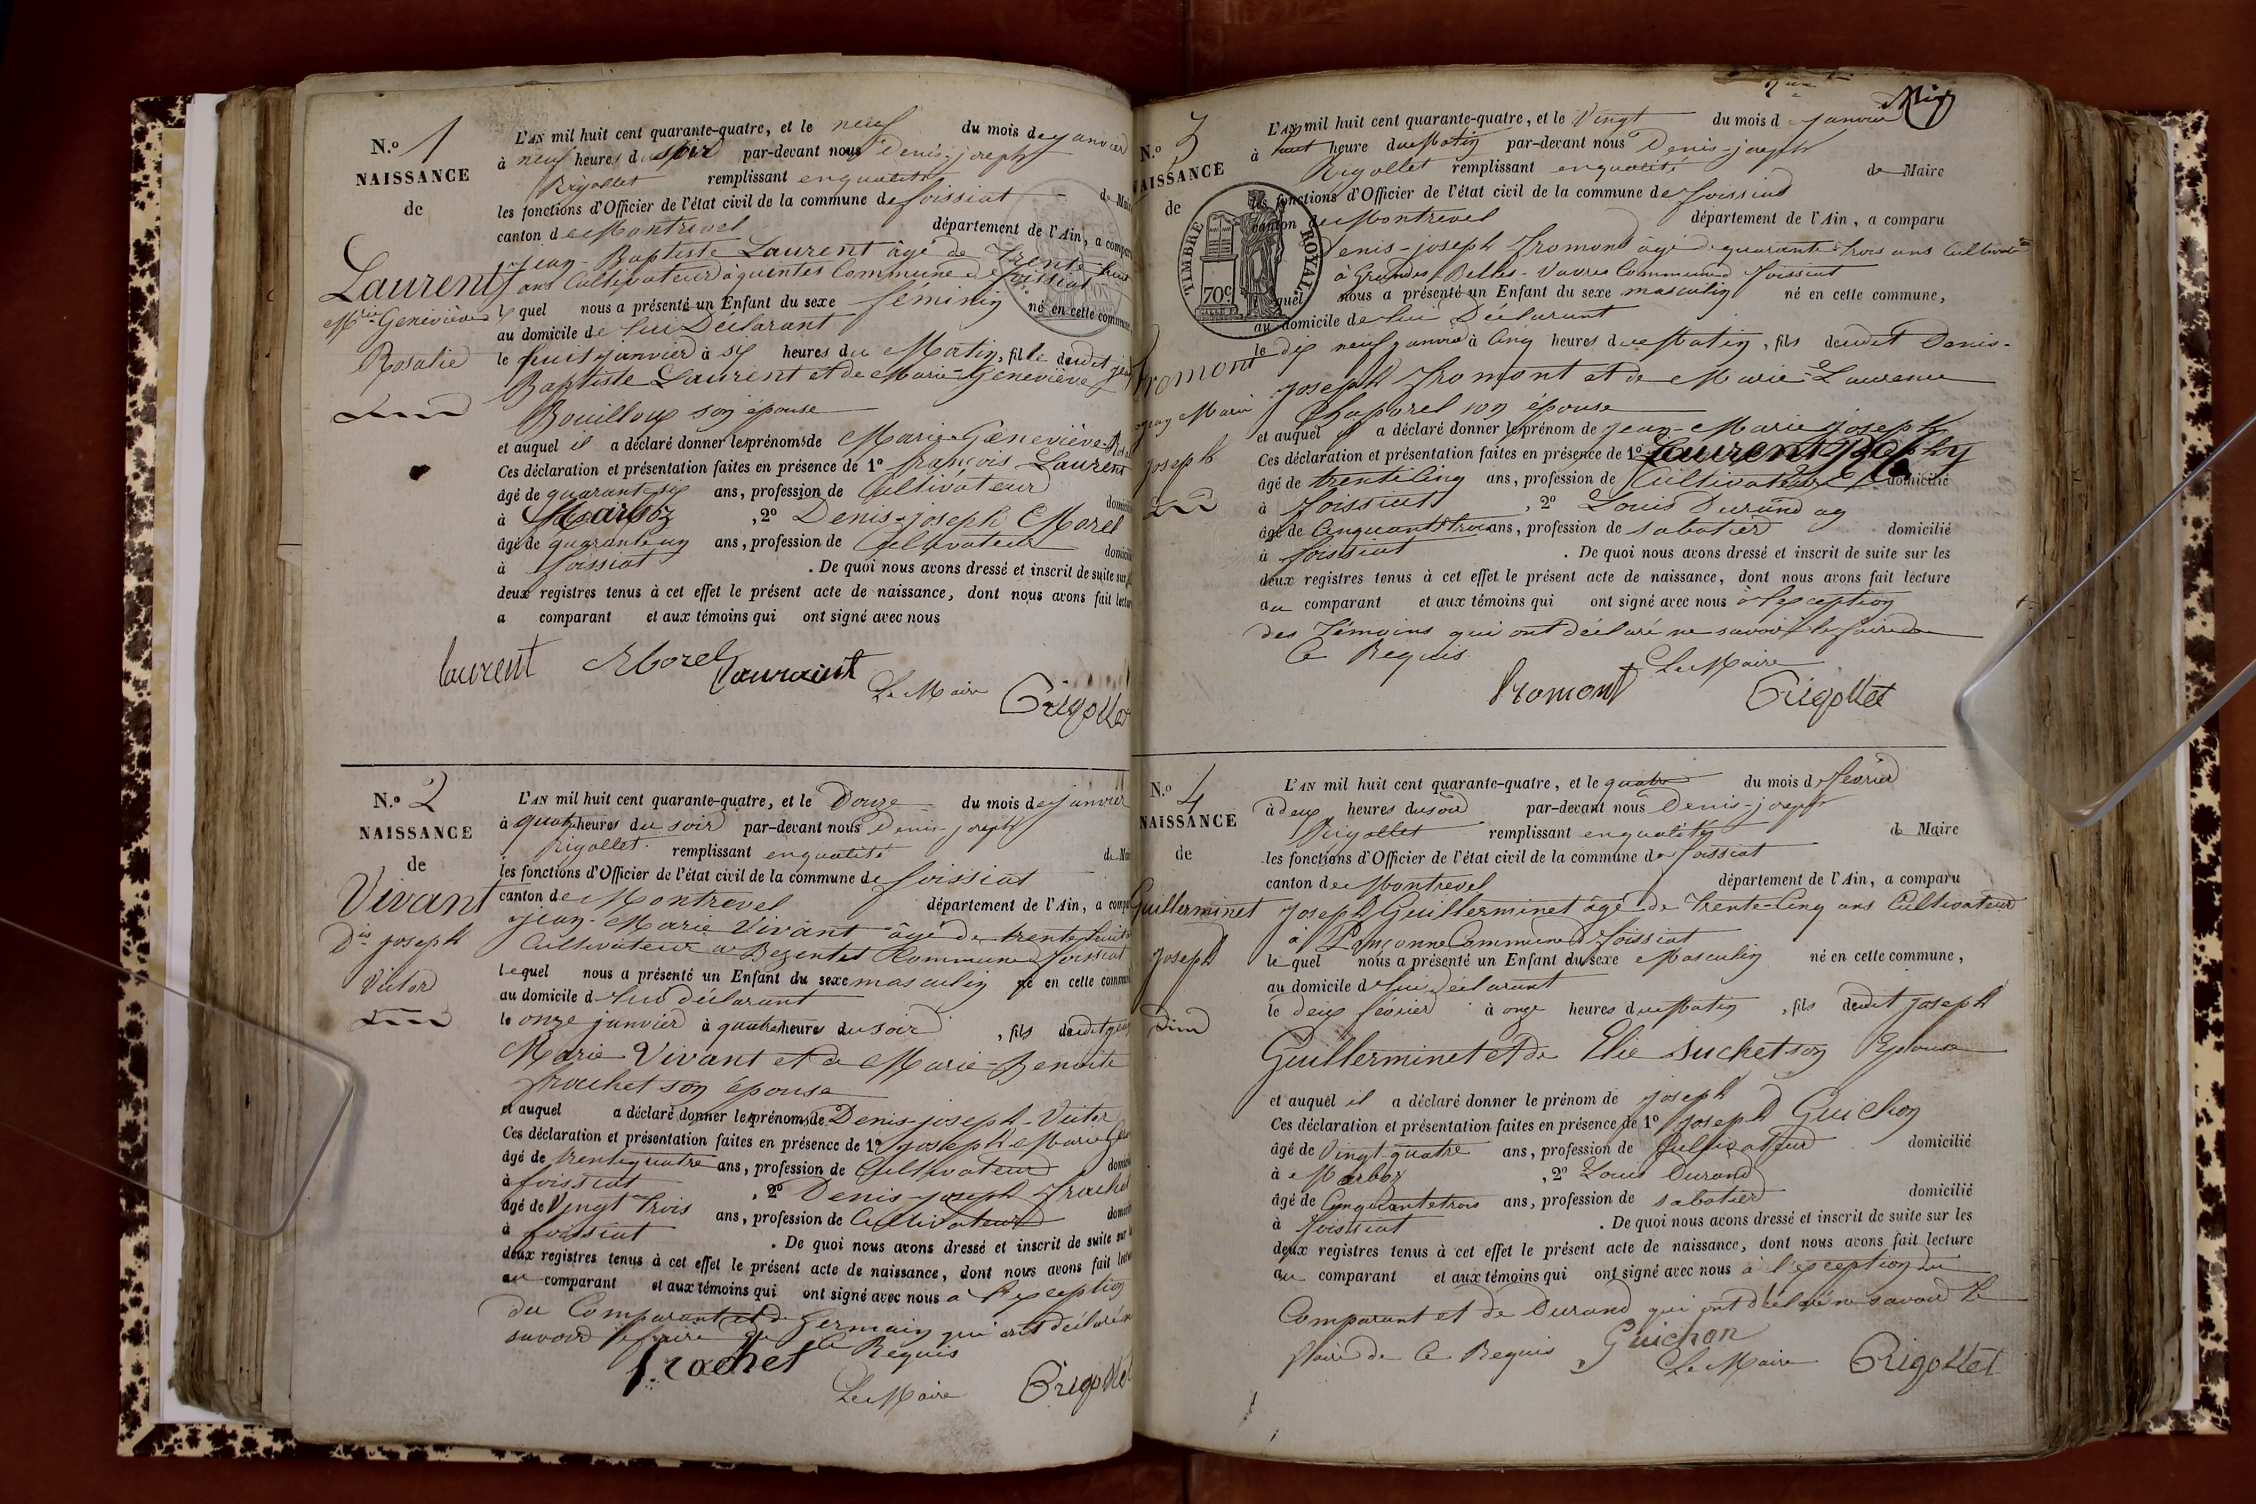 N.o 1
NAISSANCE
de
Laurent
Mie Geneviève
Rosalie
L'AN mil huit cent quarante-quatre, et le neuf du mois de janvier
à neuf heures du soir par-devant nous Denis-joseph
Rigollet remplissant en qualité de Maire
les fonctions d'Officier de l'état civil de la commune de foissiat
canton de Montrevel département de l'Ain, a comparu
jean-Baptiste Laurent âgé de Trente huit
ans Cultivateur à quintes Commune de foissiat
lequel nous a présenté un Enfant du sexe féminin né en cette commune
au domicile de lui Déclarant
le huit janvier à six heures du Matin, fille dudit jean
Baptiste Laurent et de Marie-Geneviève
Bouilloux son épouse
et auquel il a déclaré donner les prénoms de Marie-Geneviève-Rosalie
Ces déclaration et présentation faites en présence de 1o françois Laurent
âgé de quarante six ans, profession de Cultivateur domicilié
à Marboz, 2o Denis-joseph Morel
âgé de quarante un ans, profession de Cultivateur domicilié
à foissiat. De quoi nous avons dressé et inscrit de suite sur les
deux registres tenus à cet effet le présent acte de naissance, dont nous avons fait lecture
a comparant et aux témoins qui ont signé avec nous
laurent Morel Laurent Le Maire Rigollet
N.o 2
NAISSANCE
de
Vivant
Dis joseph
Victor
L'AN mil huit cent quarante-quatre, et le Douze du mois de janvier
à quatre heures du soir par-devant nous Denis-joseph
Rigollet remplissant en qualité de Maire
les fonctions d'Officier de l'état civil de la commune de foissiat
canton de Montrevel département de l'Ain, a comparu
jean-Marie Vivant âgé de trente huit
Cultivateur à Bezentet Commune foissiat
lequel nous a présenté un Enfant du sexe masculin né en cette commune
au domicile de lui déclarant
le onze janvier à quatre heures du soir, fils dudit jean
Marie Vivant et de Marie-Benoite
frachet son épouse
et auquel a déclaré donner les prénoms de Denis-joseph-Victor
Ces déclaration et présentation faites en présence de 1o joseph Marie
âgé de trente quatre ans, profession de Cultivateur domicilié
à foissiat, 2o Denis-joseph frachet
âgé de Vingt trois ans, profession de Cultivateur domicilié
à foissiat. De quoi nous avons dressé et inscrit de suite sur les
deux registres tenus à cet effet le présent acte de naissance, dont nous avons fait lecture
au comparant et aux témoins qui ont signé avec nous à l'exception
du Comparant et de Germain qui ont déclaré ne
savoir le faire de Ce Requis
frachet Le Maire Rigollet
N.o 3
NAISSANCE
de
Fromont
jean Marie
joseph
L'AN mil huit cent quarante-quatre, et le Vingt du mois de janvier
à huit heure du Matin par-devant nous Denis-joseph
Rigollet remplissant en qualité de Maire
les fonctions d'Officier de l'état civil de la commune de foissiat
canton de Montrevel département de l'Ain, a comparu
TIMBRE ROYAL 70c
Denis-joseph Fromont âgé de quarante trois ans Cultivateur
à Grandes Belles-Vavres Commune d foissiat
lequel nous a présenté un Enfant du sexe masculin né en cette commune,
au domicile de lui Déclarant
le dix neuf janvier à Cinq heures du Matin, fils dudit Denis-
joseph Fromont et de Marie-Laurence
Chaporel son épouse
et auquel il a déclaré donner le prénom de jean-Marie joseph
Ces déclaration et présentation faites en présence de 1o Laurent
âgé de trente Cinq ans, profession de Cultivateur domicilié
à foissiat, 2o Louis Durand
âgé de Cinquante trois ans, profession de sabotier domicilié
à foissiat. De quoi nous avons dressé et inscrit de suite sur les
deux registres tenus à cet effet le présent acte de naissance, dont nous avons fait lecture
au comparant et aux témoins qui ont signé avec nous à l'exception
des Témoins qui ont déclaré ne savoir le faire de
Ce Requis Le Maire
fromont Rigollet
N.o 4
NAISSANCE
de
Guillerminet
joseph
L'AN mil huit cent quarante-quatre, et le quatre du mois de février
à deux heures du soir par-devant nous Denis-joseph
Rigollet remplissant en qualité de Maire
les fonctions d'Officier de l'état civil de la commune de foissiat
canton de Montrevel département de l'Ain, a comparu
joseph Guillerminet âgé de Trente-Cinq ans Cultivateur
à Lançonne Commune d foissiat
lequel nous a présenté un Enfant du sexe Masculin né en cette commune,
au domicile de lui déclarant
le deux février à onze heures du Matin, fils dudit joseph
Guillerminet et de Elie Suchet son Epouse
et auquel il a déclaré donner le prénom de joseph
Ces déclaration et présentation faites en présence de 1o joseph Guichon
âgé de Vingt quatre ans, profession de Cultivateur domicilié
à Marboz, 2o Louis Durand
âgé de Cinquante trois ans, profession de sabotier domicilié
à foissiat. De quoi nous avons dressé et inscrit de suite sur les
deux registres tenus à cet effet le présent acte de naissance, dont nous avons fait lecture
au comparant et aux témoins qui ont signé avec nous à l'exception du
Comparant et de Durand qui ont déclaré ne savoir le
faire de Ce Requis Guichon Le Maire Rigollet